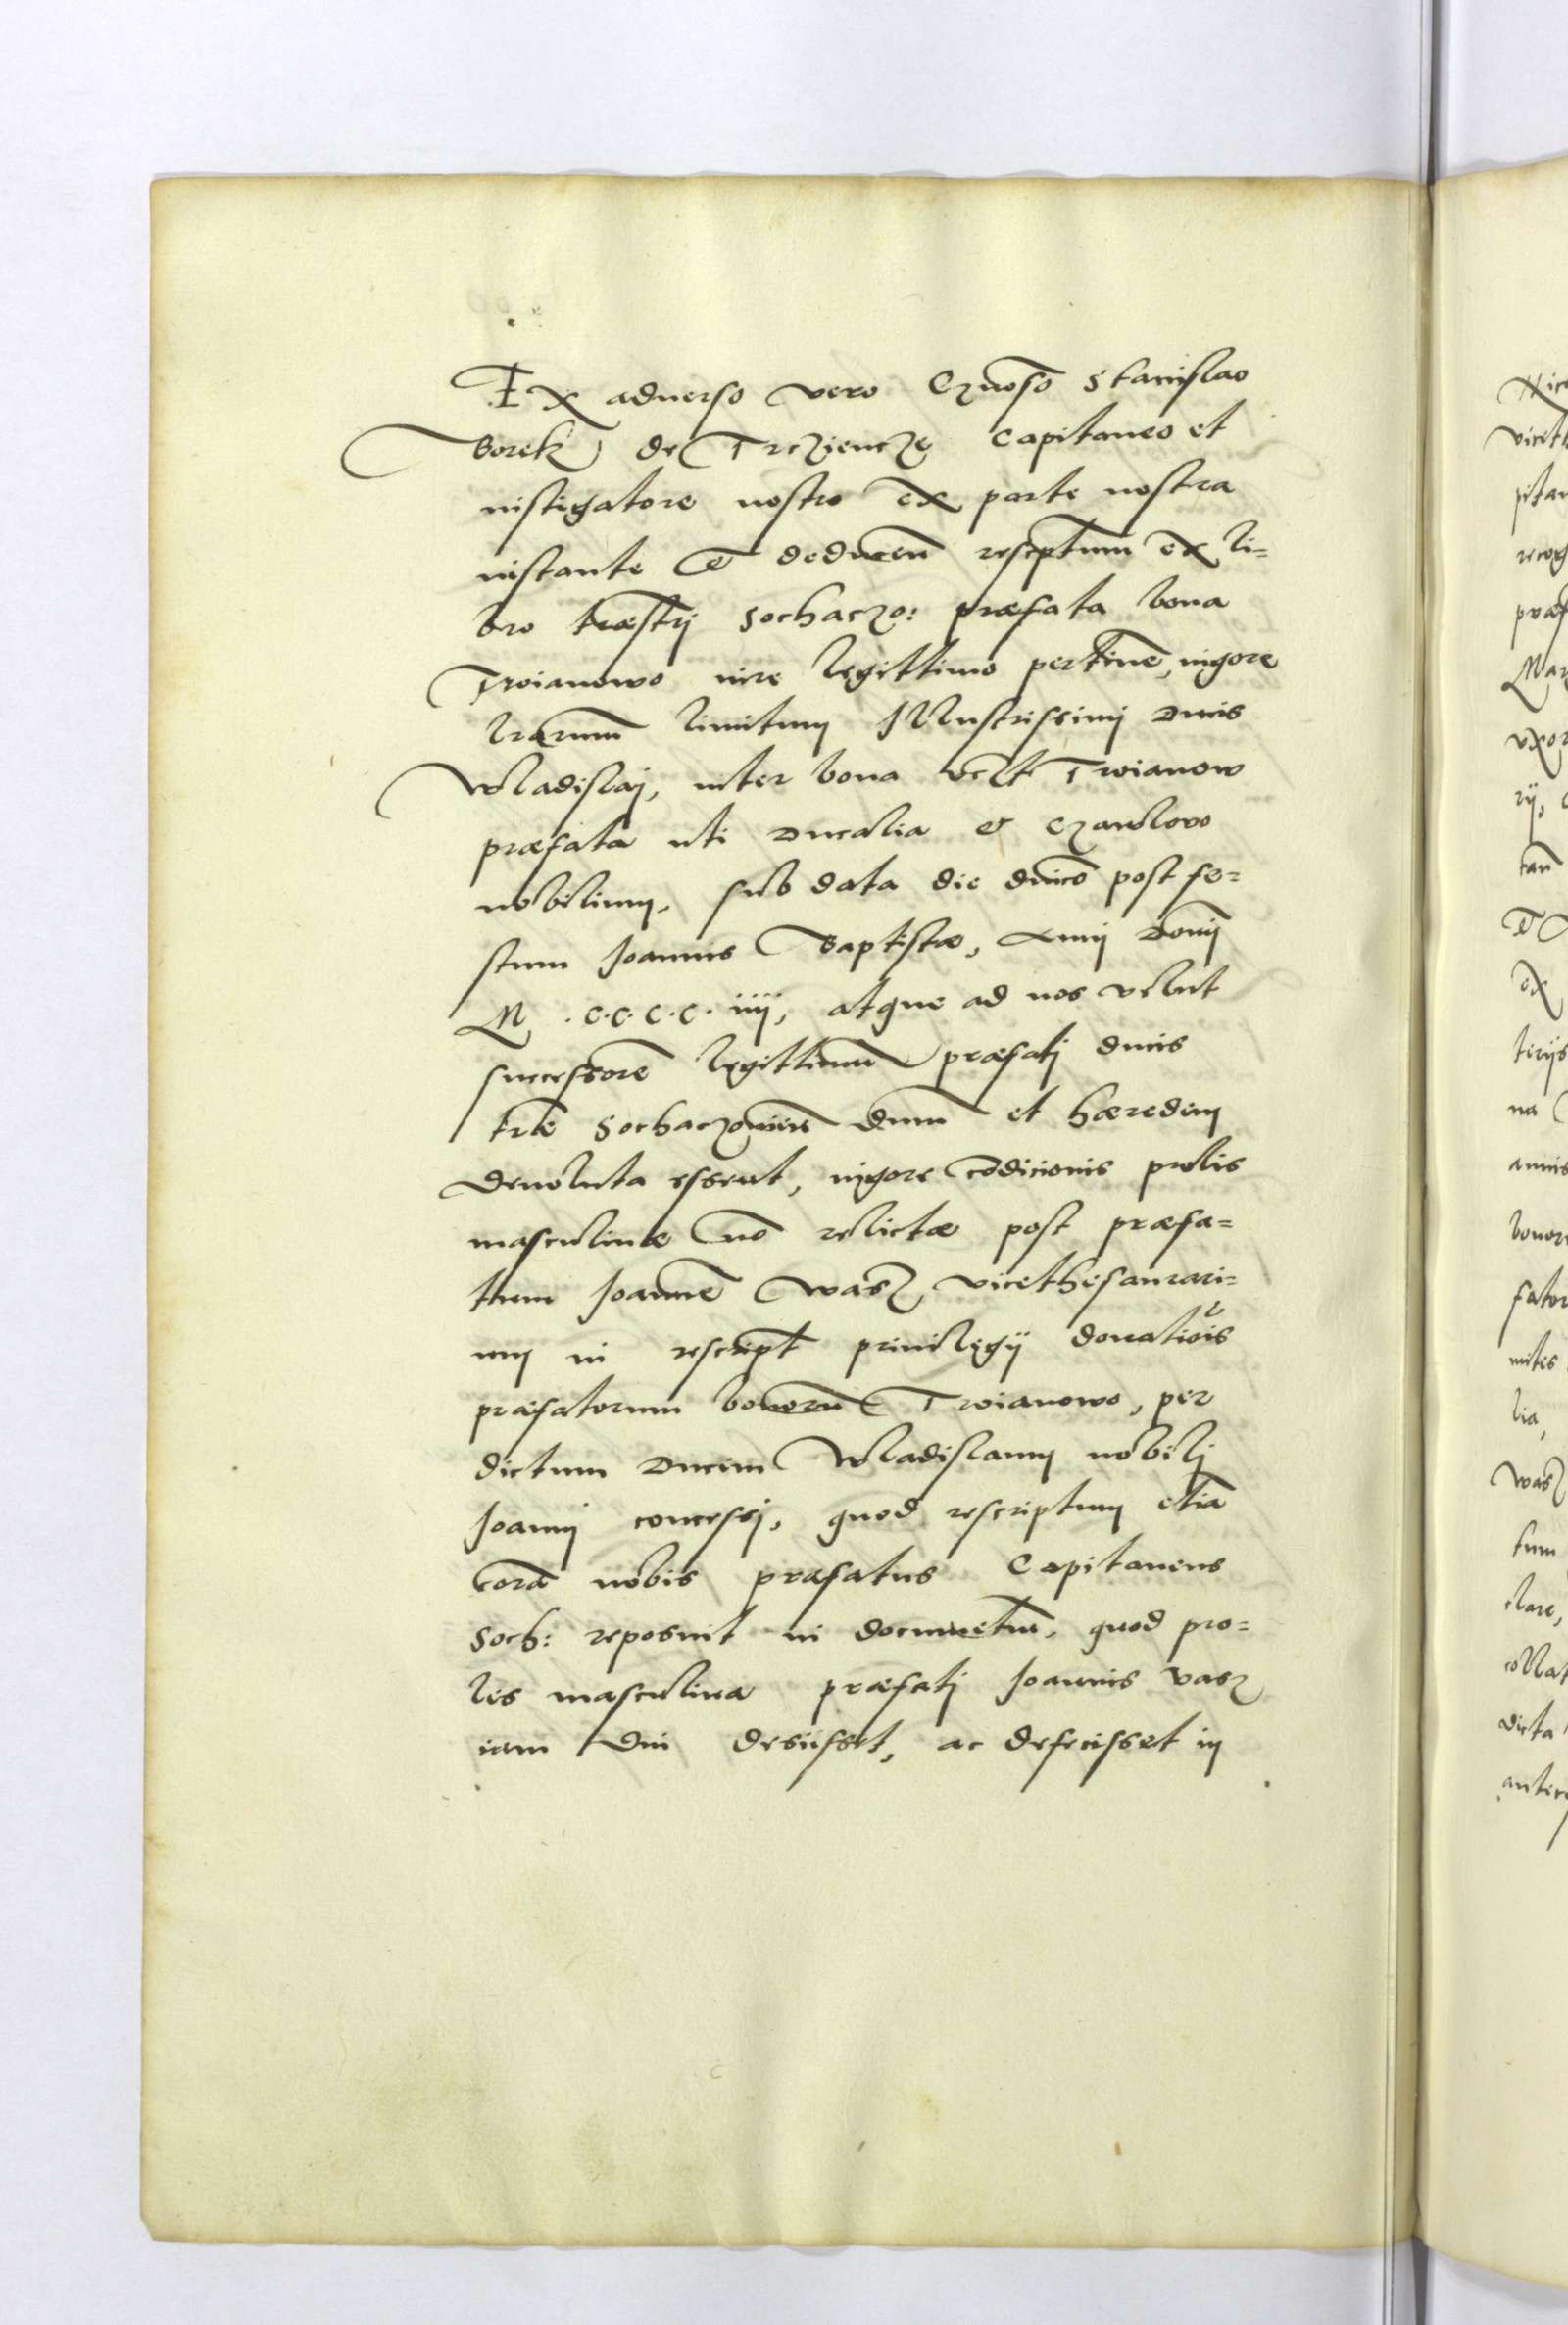 Ex aduerso vero Gnoso Stanislao
Borek de Trcziencze Capitaneo et
instigatore nostro ex parte nostra
instante et deducen̄ rescptum ex li=
bro trrestrj Sochaczo: præfata bona
Troianowo iure legittimo pertinē, uigore
lrarum limitum Illustrissimj Ducis
Wladislaj, inter bona Troianow
præfata uti Ducalia & Czawlowo
nobilium, sub data die dnico post fe=
stum Joannis Baptistæ, Anni Domj
M .C.C.C.C. iiij, atque ad nos velut
successorē legittimum præfatj ducis
trræ Sochaczouien̄ dnum et hæredem
deuoluta essent, uigore cōdicionis prolis
masculinæ nō relictæ post præfa=
tum Joannē Wasz vicethesaurari=
um in rescript priuilegij donatiōis
præfatorum bonorū Troianowo, per
dictum Ducem Wladislaum nobilj
Joannj concessj, quod rescriptum etiā
corā nobis præfatus Capitaneus
Soch: reposuit in documētum, quod pro=
les masculina præfatj Joannis Vasz
iam diu desijsset, ac defecisset in